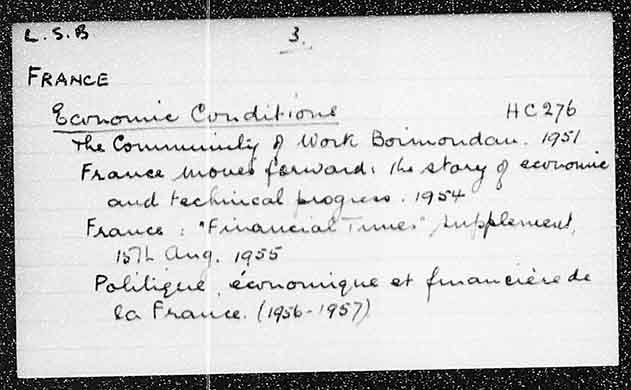 L.S.B 3.
FRANCE
Economic Conditions HC276
The Community of Work Boimondau. 1951
France moves forward: the story of economic
and technical progress. 1954
France : "Financial Times" supplement,
15th Aug. 1955
Politique, économique et financière de
la France. (1956-1957)